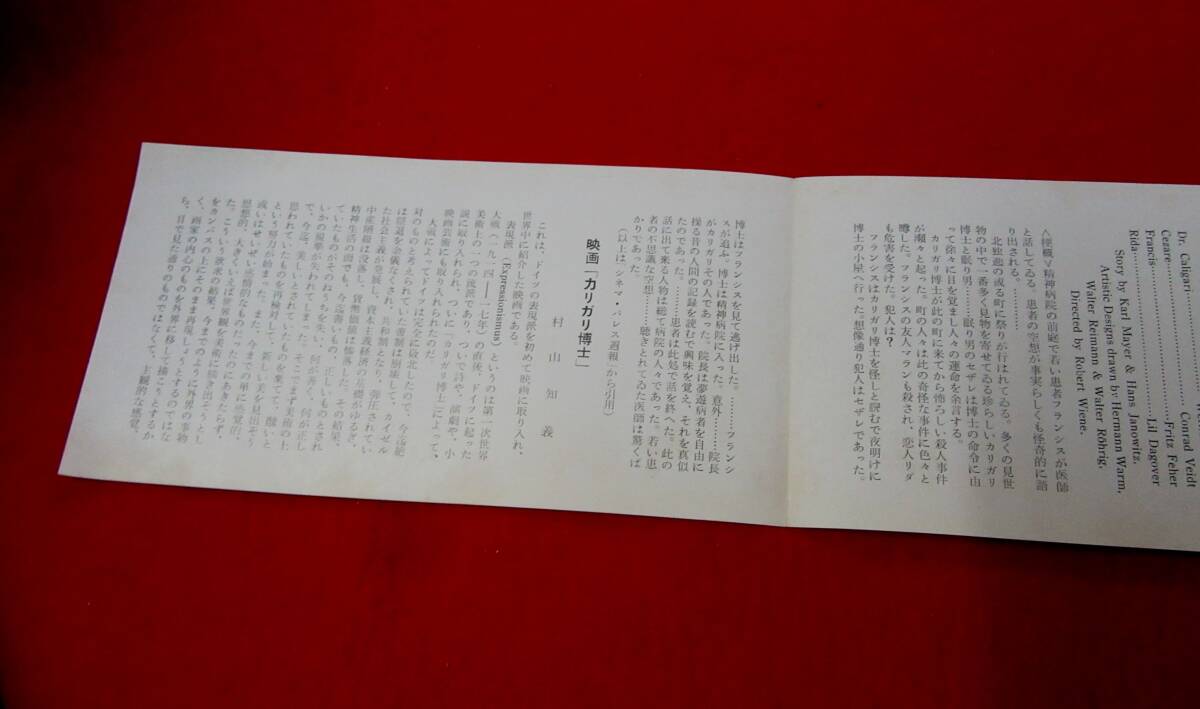 Dr. Caligari
Cezare………Conrad Veidt
Francis………Fritz Feher
Rida………Lil Dagover
Story by Karl Mayer & Hans Janowitz.
Artistic Designs drawn by Hermann Warm,
Walter Reimann & Walter Röhrig.
Directed by Robert Wiene.
精神病院の前庭で若い患者フランシスが医師
と話してゐる。患者の空想が事実らしくも怪奇的に語
り出される。………
北独逸の或る町に祭りが行はれてゐる。多くの見世
物の中で一番多く見物を寄せてゐる珍らしいカリガリ
博士と眠り男。………眠り男のセザレは博士の命令に由
って徐々に目を覚まし人々の運命を予言する。
カリガリ博士が此の町に来てから怖ろしい殺人事件
が頻々と起った。町の人々は此の奇怪な事件に色々と
噂した。フランシスの友人アランも殺され、恋人リダ
も危害を受けた。犯人は？
フランシスはカリガリ博士を怪しと睨むで夜明けに
博士の小屋へ行った。想像通り犯人はセザレであった。
博士はフランシスを見て逃げ出した。………フランシ
スが追ふ。博士は精神病院に入った。意外………院長
がカリガリその人であった。院長は夢遊病者を自由に
操る昔の人間の記録を読むで興味を覚え、それを真似
たのであった。………患者は此処で話を終へた。此の
話に出て来る人物は総て病院の人々であった。若い患
者の不思議な空想………聴きとれてゐた医師は驚くば
かりであった。
（以上は、シネマ・パレス週報から引用）
映画「カリガリ博士」
村山知義
これは、ドイツの表現派を初めて映画に取り入れ、
世界中に紹介した映画である。
表現派（Expressionismus）というのは第一次世界
大戦（一九一四—一七年）の直後、ドイツに起った
美術上の一つの流派であり、ついで詩や、演劇や、小
説に取り入れられ、ついに「カリガリ博士」によって、
映画芸術にも取り入れられたのだ。
大戦によってドイツは完全に敗北したので、今迄絶
対のものと考えられていた帝制は崩壊して、カイゼル
は隠退を余儀なくされ、共和制となり、弾圧されてい
た社会主義が発展し、資本主義経済の基礎がゆるぎ、
中産階級は没落し、貨幣価値は惨落した。その結果、
精神生活の面でも、今迄善いもの、正しいものとされ
ていたものがそのねうちを失い、何が善く、何が正し
いかの規準が失われてしまった。そこでまず美術の上
で、今迄、美しいとされていたものを棄てて、醜いと
思われていたものを再検討して、新しい美を見出そう
という努力が始まった。また、今までの単に感覚的、
或いはせいぜい感情的なものだったのにあきたらず、
思想的、大きくいえば世界観を美術に描き出そうとし
た。こういう欲求の結果、今までのように外界の事物
をカンバスの上にそのまま再現しようとするのではな
く、画家の内心のものを外界に移して描こうとするか
ら、目で見た通りのものではなくて、主観的な感覚、